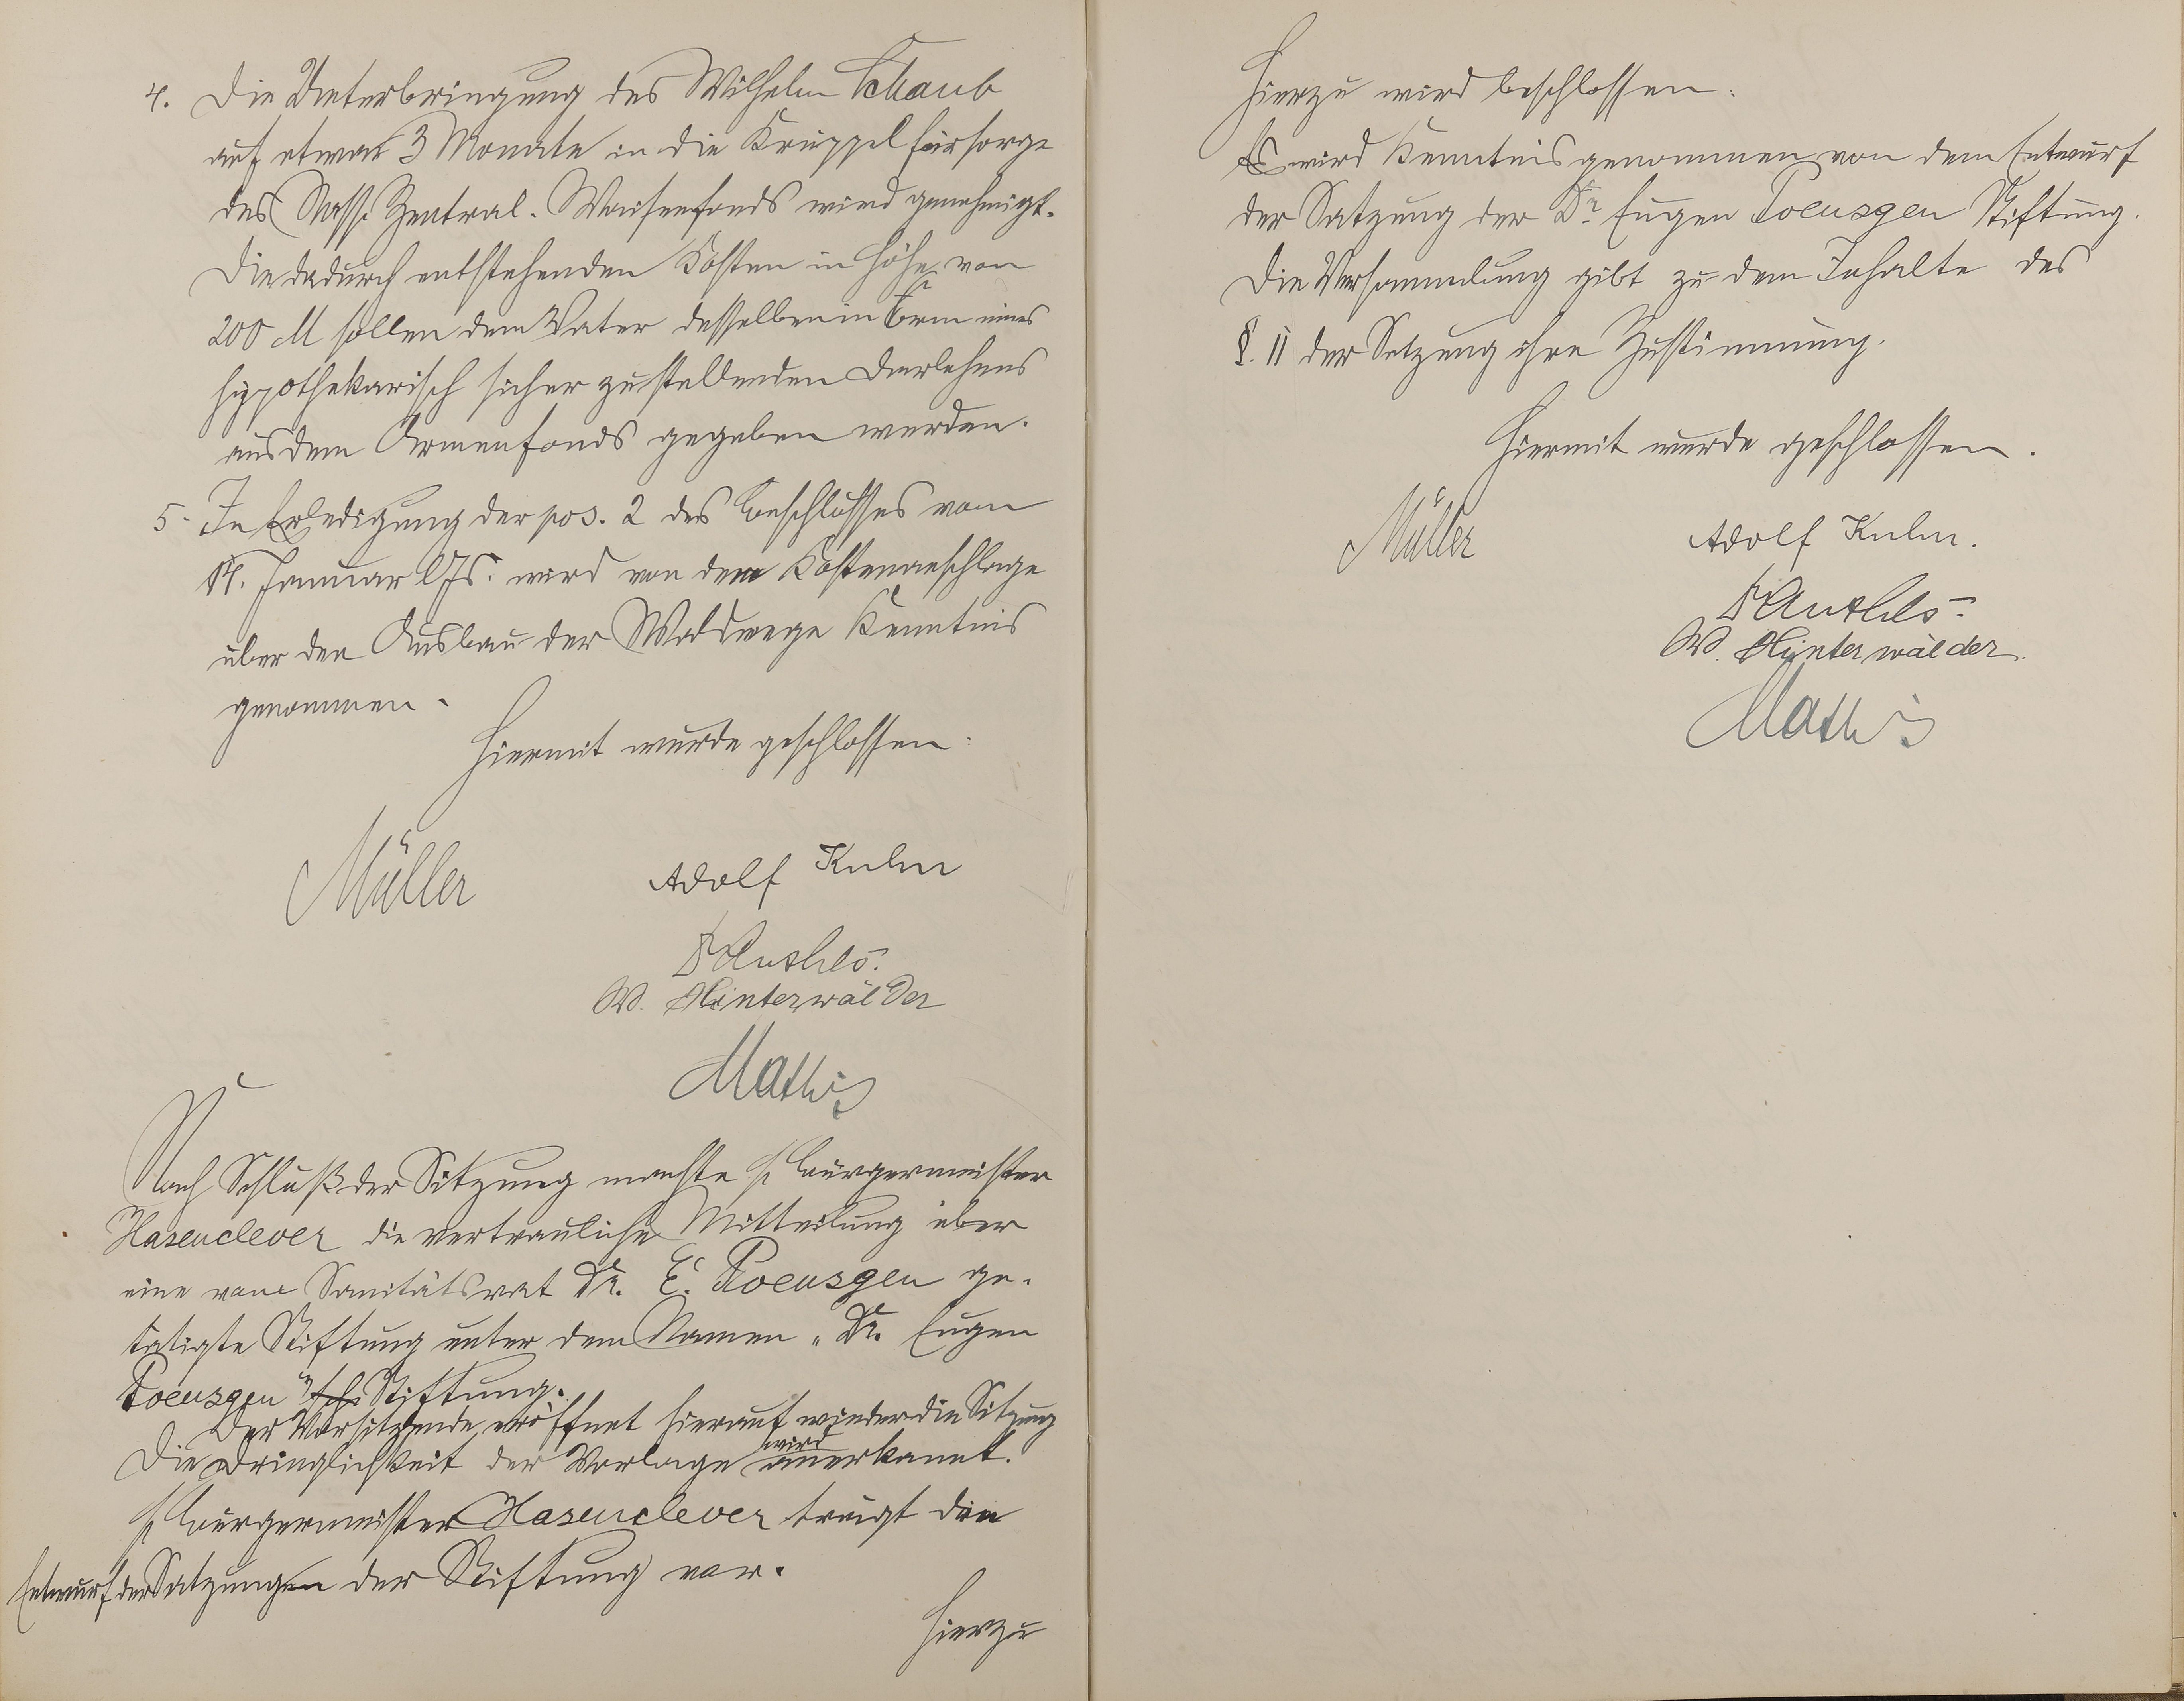 4. Die Unterbringung des Wilhelm Schaub
auf etwa 3 Monate in die Krüppelfürsorge
des Nass. Zentral-Waisenfonds wird genehmigt.
Die dadurch entstehenden Kosten in Höhe von
200 M sollen dem Vater desselben in Form eines
hypothekarisch sicher zu stellenden Darlehens
aus dem Armenfonds gegeben werden.
5. In Erledigung der pos. 2 des Beschlusses vom
Januar l Js. wird von dem Kostenanschlage
über den Ausbau der Waldwege Kenntnis
genommen.
Hiermit wurde geschlossen:
Müller
Adolf Kuhn
Anthes.
W. Hinterwälder
Mathis
Nach Schluß der Sitzung machte H Bürgermeister
Hasenclever die vertrauliche Mitteilung über
eine vom Sanitätsrat Dr. E. Poensgen ge-
tätigte Stiftung unter dem Namen „Dr. Eugen
Poensgen" sche Stiftung.
Der Vorsitzende eröffnet hierauf wieder die Sitzung
Die Dringlichkeit der Vorlage wird anerkannt.
H Bürgermeister Hasenclever trägt den
Entwurf der Satzungen der Stiftung vor.
Hierzu
Hierzu wird beschlossen:
Es wird Kenntnis genommen von dem Entwurf
der Satzung der Dr Eugen Poensgen Stiftung.
Die Versammlung gibt zu dem Inhalte des
§. 11 der Satzung ihre Zustimmung.
Hiermit wurde geschlossen.
Müller
Adolf Kuhn.
Anthes.
W. Hinterwälder.
Mathis